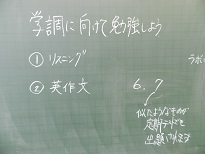 学調に向けて勉強しよう
① リスニング
② 英作文
6.7
似たようなものが
定期テストでも
出題されます
ラボ